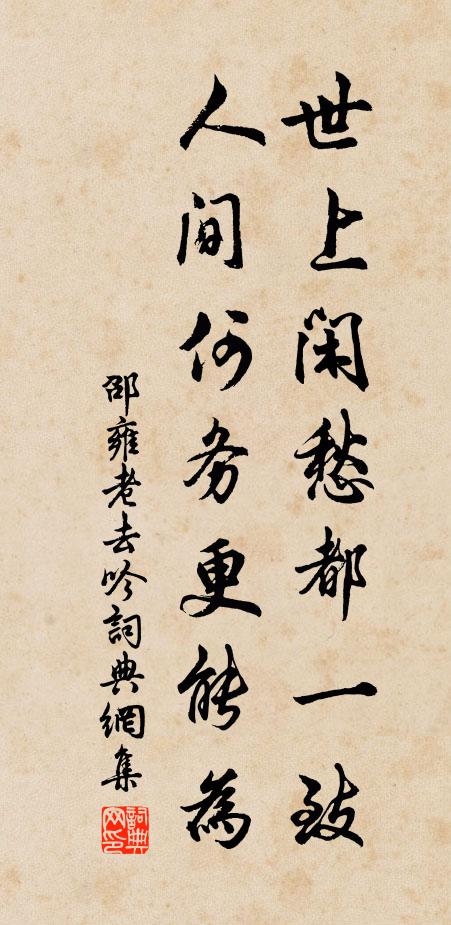 世上闲愁都一致
人间何务更能為
邵雍老去吟詞典網集
詞典網印